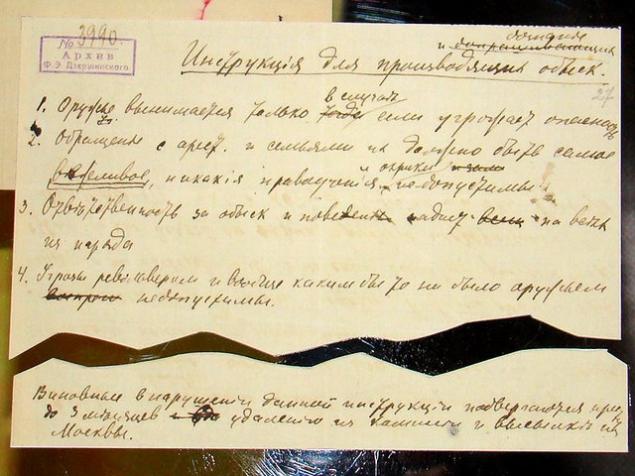 № 3990.
Архив
Ф.Э. Дзержинского
дознание
и
Инструкція для производящих обыск.
27
в случае
1. Оружье вынимается только если угрожает опасность
2. Обращение с арест. и семьями их должно быть самое
и окрики
вежливое, никакія нравоученія недопустимы
3. Ответственность за обыск и поведение падает на всех
из наряда
4. Угрозы револьвером и вообще каким бы то ни было оружьем
недопустимы.
Виновные в нарушении данной инструкции подвергаются
до 3 месяцев удалению из Комиссии и высылке из
Москвы.